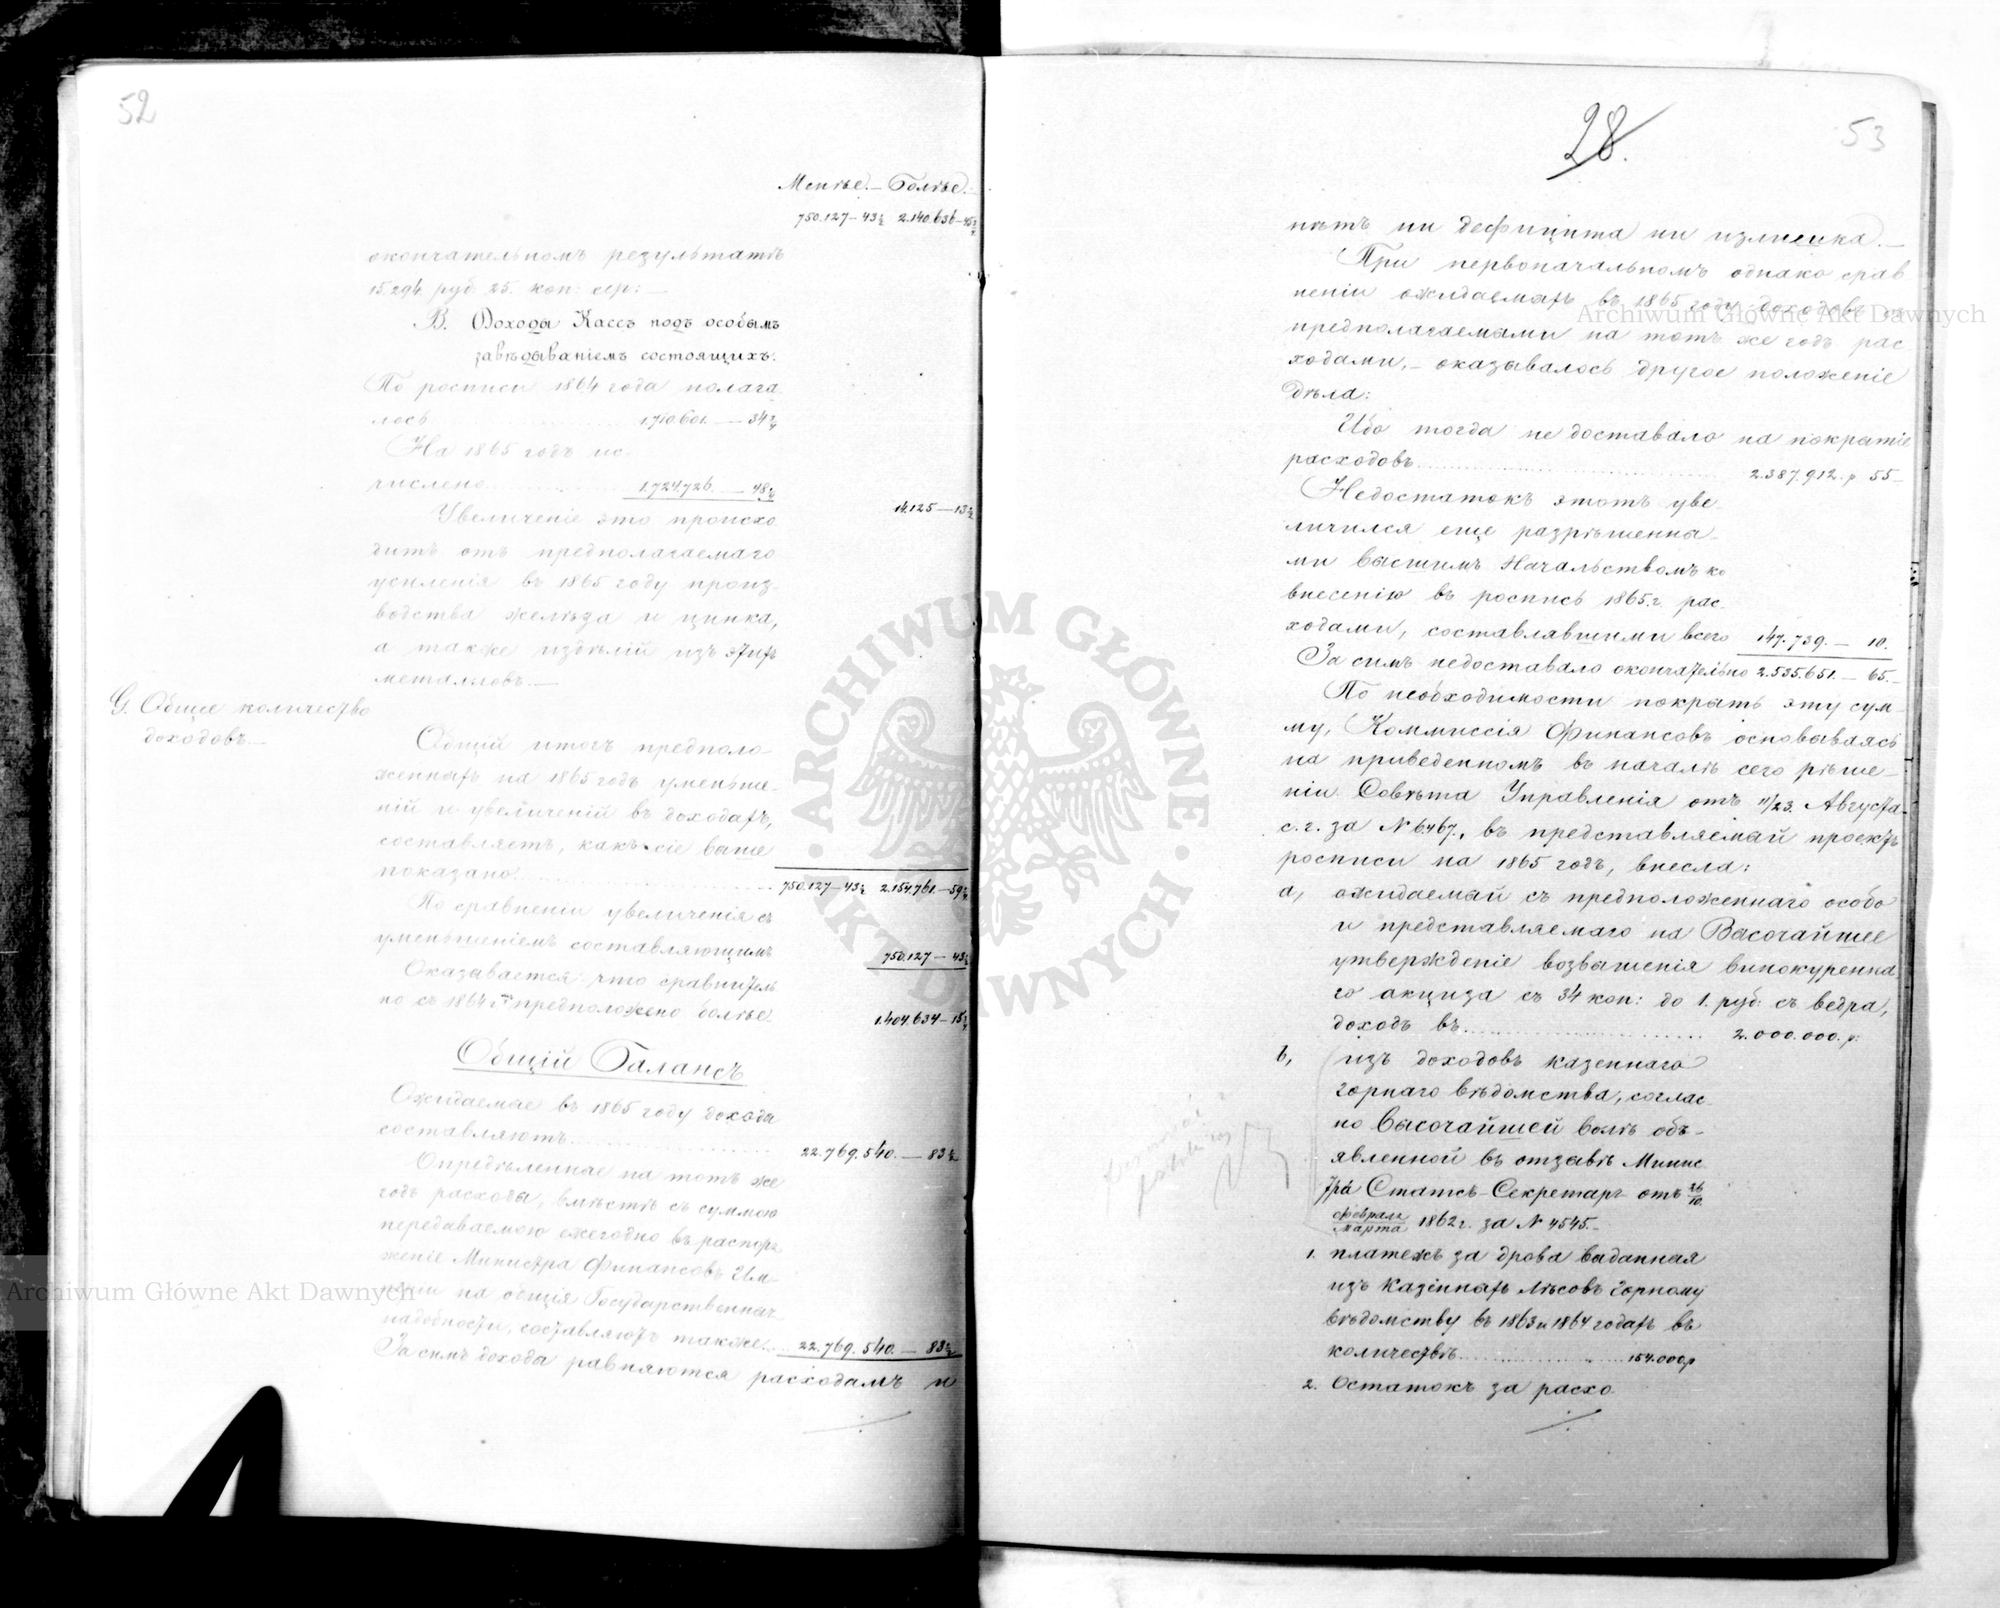 52
Менѣе.— Болѣе.
750.127—43½ 2.140.636—45¾
окончательномъ результатѣ
15.294 руб. 25. коп: сер:—
В. Дохода Кассъ подъ особымъ
завѣдываніемъ состоящихъ.
По росписи 1864 года полага
лось 1.710.601.—34¾
На 1865 годъ ис-
числено 1.724.726.—48½
14.125—13¾
Увеличеніе это происхо
дитъ отъ предполагаемаго
усиленія въ 1865 году произ-
водства желѣза и цинка,
а также издѣлій изъ этихъ
металловъ.—
G. Общее количество
доходовъ.—
Общій итогъ предполо-
женныхъ на 1865 годъ уменьше-
ній и увеличеній въ доходахъ,
составляетъ, какъ сіе выше
показано 750.127—43½ 2.154.761.—59
По сравненіи увеличенія съ
уменьшеніемъ составляющимъ 750.127—43½
Оказывается что сравнитель
но съ 1864 г. предположено болѣе 1.404.634—15¾
Общій Балансъ
Ожидаемые въ 1865 году доходы
составляютъ 22.769.540.—83½
Опредѣленные на тотъ же
годъ расходы, вмѣстѣ съ суммою
передаваемою ежегодно въ распоря
женіе Министра Финансовъ Им-
періи на общія Государственныя
надобности, составляютъ также 22.769.540.—83½
За симъ доходы равняются расходамъ и
53
28.
нѣтъ ни дефицита ни излишка.—
При первоначальномъ однако срав
неніи ожидаемыхъ въ 1865 году доходовъ съ
предполагаемыми на тотъ же годъ рас
ходами,— оказывалось другое положеніе
дѣла:
Ибо тогда не доставало на покрытіе
расходовъ 2.387.912. р 55—
Недостатокъ этотъ уве
личился еще разрѣшенны-
ми высшимъ Начальствомъ ко
внесенію въ роспись 1865 г. рас-
ходами, составлявшими всего 147.739.—10.
За симъ недоставало окончательно 2.535.651.—65.—
По необходимости покрыть эту сум-
му, Коммиссія Финансовъ основываясь
на приведенномъ въ началѣ сего рѣше-
ніи Совѣта Управленія отъ 11/23. Августа
с. г. за № 6467, въ представляемый проектъ
росписи на 1865 годъ, внесла:
а, ожидаемый съ предположеннаго особо
и представляемаго на Высочайшее
утвержденіе возвышенія винокуренна
го акциза съ 34 коп: до 1. руб: съ ведра,
доходъ въ 2.000.000. р:
b, изъ доходовъ казеннаго
горнаго вѣдомства, соглас-
но Высочайшей волѣ объ-
явленной въ отзывѣ Минис
тра Статсъ-Секретаря отъ 26/10.
Февраля/Марта 1862 г. за № 4545.—
1. платежъ за дрова выданныя
изъ казенныхъ лѣсовъ Горному
вѣдомству въ 1863 и 1864 годахъ въ
количествѣ 154.000 р
2. Остатокъ за расхо
Archiwum Główne Akt Dawnych
ARCHIWUM GŁÓWNE AKT DAWNYCH
Archiwum Główne Akt Dawnych